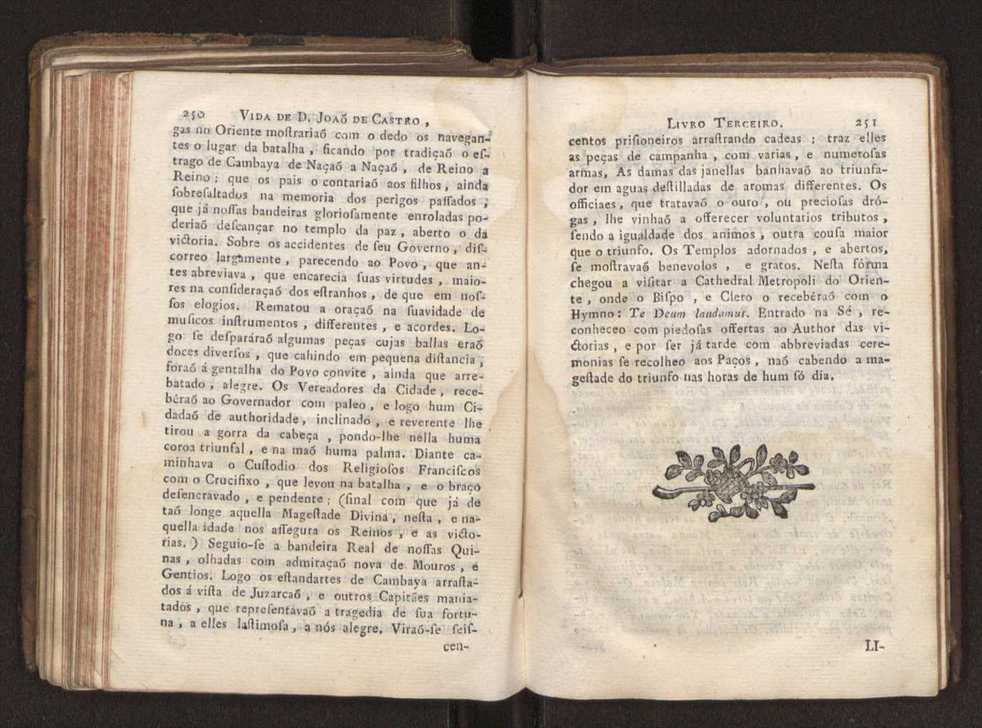 250 VIDA DE D. JOAÕ DE CASTRO ,
gas no Oriente moſtrariaõ com o dedo os navegan-
tes o lugar da batalha , ficando por tradiçaõ o eſ-
trago de Cambaya de Naçaõ a Naçaõ , de Reino a
Reino ; que os pais o contariaõ aos filhos , ainda
ſobreſaltados na memoria dos perigos paſſados ;
que já noſſas bandeiras glorioſamente enroladas po-
deriaõ deſcançar no templo da paz , aberto o da
victoria. Sobre os accidentes de ſeu Governo , diſ-
correo largamente , parecendo ao Povo , que an-
tes abreviava , que encarecia ſuas virtudes , maio-
res na conſideraçaõ dos eſtranhos , de que em noſ-
ſos elogios. Rematou a oraçaõ na ſuavidade de
muſicos inſtrumentos , differentes , e acordes. Lo-
go ſe deſparáraõ algumas peças cujas ballas eraõ
doces diverſos , que cahindo em pequena diſtancia ,
foraõ á gentalha do Povo convite , ainda que arre-
batado , alegre. Os Vereadores da Cidade , rece-
bêraõ ao Governador com paleo , e logo hum Ci-
dadaõ de authoridade , inclinado , e reverente lhe
tirou a gorra da cabeça , pondo-lhe nella huma
coroa triunfal , e na maõ huma palma. Diante ca-
minhava o Cuſtodio dos Religioſos Franciſcos
com o Crucifixo , que levou na batalha , e o braço
deſencravado , e pendente ; (ſinal com que já de
taõ longe aquella Mageſtade Divina , neſta , e na-
quella idade nos aſſegura os Reinos , e as victo-
rias. ) Seguio-ſe a bandeira Real de noſſas Qui-
nas , olhadas com admiraçaõ nova de Mouros , e
Gentios. Logo os eſtandartes de Cambaya arraſta-
dos á viſta de Juzarcaõ , e outros Capitães mania-
tados , que repreſentavaõ a tragedia de ſua fortu-
na , a elles laſtimoſa , a nós alegre. Viraõ-ſe ſeiſ-
cen-
LIVRO TERCEIRO. 251
centos priſioneiros arraſtrando cadeas ; traz elles
as peças de campanha , com varias , e numeroſas
armas. As damas das janellas banhavaõ ao triunfa-
dor em aguas deſtilladas de aromas differentes. Os
officiaes , que tratavaõ o ouro , ou precioſas dró-
gas , lhe vinhaõ a offerecer voluntarios tributos ,
ſendo a igualdade dos animos , outra couſa maior
que o triunfo. Os Templos adornados , e abertos,
ſe moſtravaõ benevolos , e gratos. Neſta fórma
chegou a viſitar a Cathedral Metropoli do Orien-
te , onde o Biſpo , e Clero o recebêraõ com o
Hymno: Te Deum laudamur. Entrado na Sé , re-
conheceo com piedoſas offertas ao Author das vi-
ctorias , e por ſer já tarde com abbreviadas cere-
monias ſe recolheo aos Paços , naõ cabendo a ma-
geſtade do triunfo nas horas de hum ſó dia.
LI-